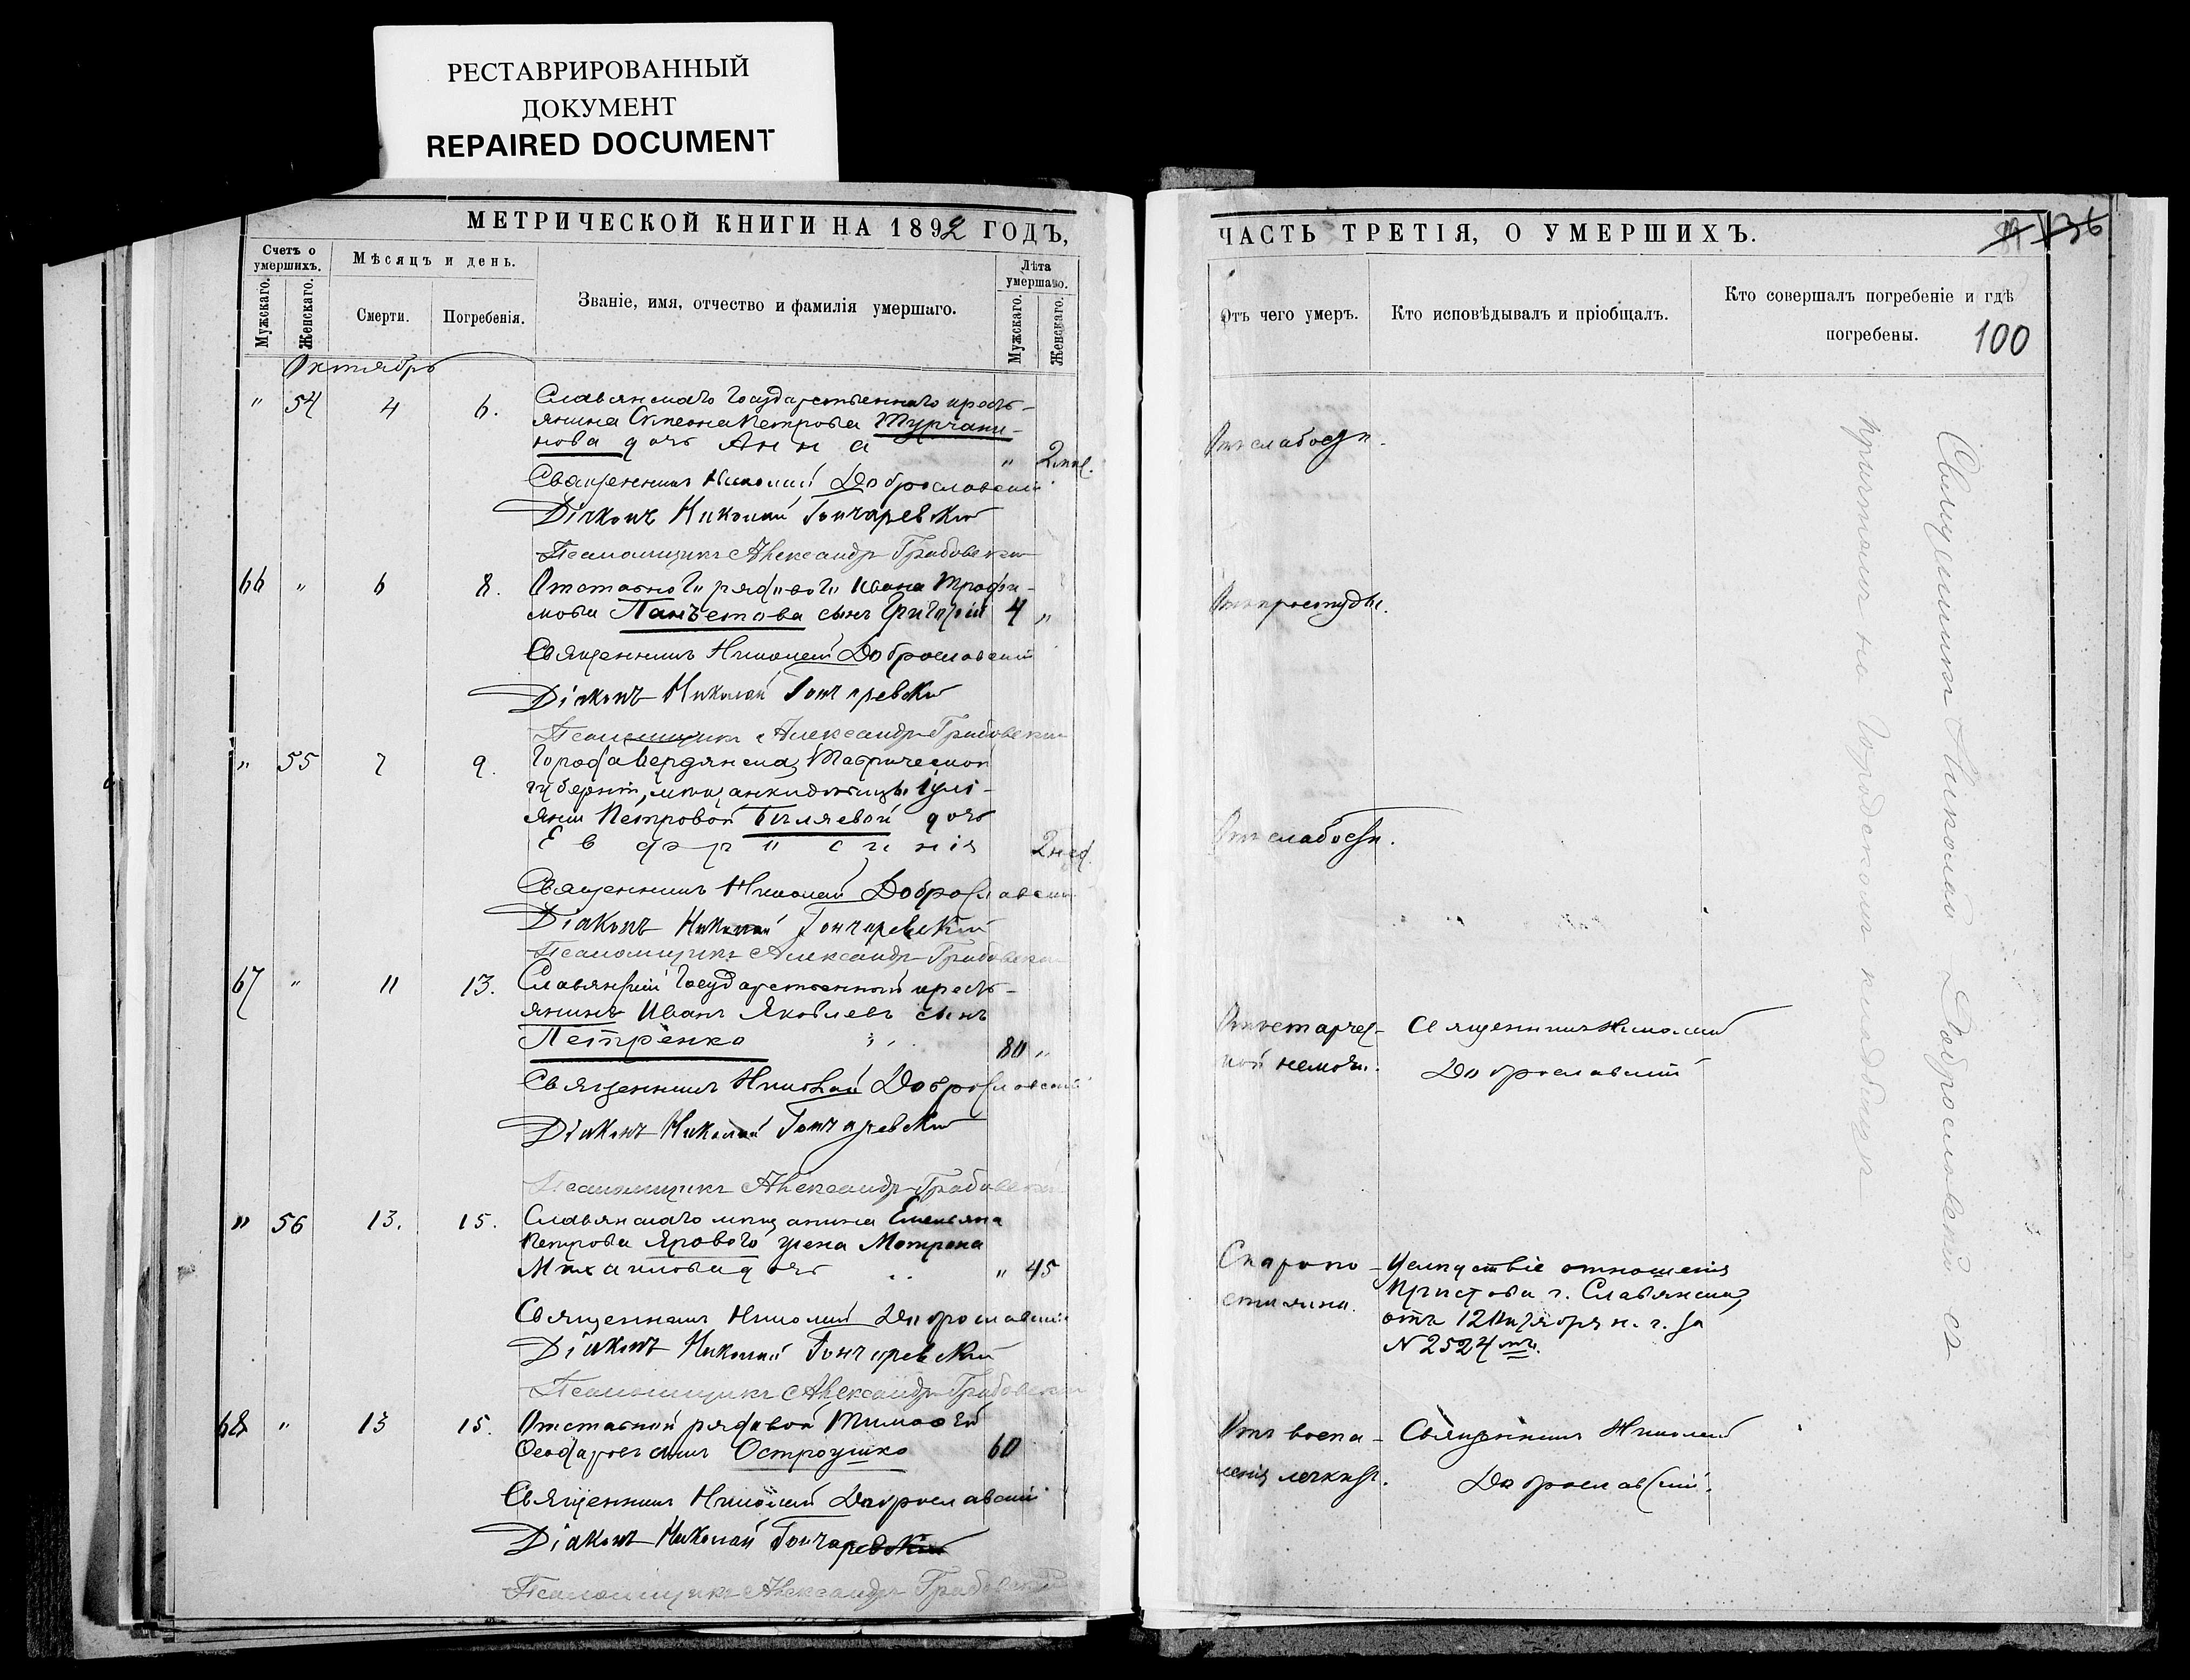 РЕСТАВРИРОВАННЫЙ
ДОКУМЕНТ
REPAIRED DOCUMENT
МЕТРИЧЕСКОЙ КНИГИ НА 1892 ГОДЪ,
Счетъ о умершихъ.
Мужскаго.
Женскаго.
Мѣсяцъ и день.
Смерти.
Погребенія.
Званіе, имя, отчество и фамилія умершаго.
Лѣта умершаго.
Мужскаго.
Женскаго.
Октябрь
" 54 4 6. Славянскаго Государственнаго кресть-
янина Степана Петрова Турчани-
нова дочь Анна " 2 мѣс.
Священникъ Николай Доброславскій
Діаконъ Николай Гончаревскій
Псаломщикъ Александръ Грабовскій
66 " 6 8. Отставного рядового Ивана Трофи-
мова сынъ Григорій 4 "
Священникъ Николай Доброславскій
Діаконъ Николай Гончаревскій
Псаломщикъ Александръ Грабовскій
" 55 7 9. Города Бердянска, Таврической
губерніи, мѣщанки дѣвицы Іулі-
яніи Петровой Бѣляевой дочь
Евфросинія 2 нед.
Священникъ Николай Доброславскій
Діаконъ Николай Гончаревскій
Псаломщикъ Александръ Грабовскій
67 " 11 13. Славянскій Государственный кресть-
янинъ Иванъ Яковлевъ сынъ
Петренко 80 "
Священникъ Николай Доброславскій
Діаконъ Николай Гончаревскій
Псаломщикъ Александръ Грабовскій
" 56 13. 15. Славянскаго мѣщанина Емельяна
Петрова Ярового жена Матрона
Михаилова дочь " 45
Священникъ Николай Доброславскій
Діаконъ Николай Гончаревскій
Псаломщикъ Александръ Грабовскій
68 " 13 15. Отставной рядовой Тимофей
сынъ Остроушко 60
Священникъ Николай Доброславскій
Діаконъ Николай Гончаревскій
Псаломщикъ Александръ Грабовскій
ЧАСТЬ ТРЕТІЯ, О УМЕРШИХЪ.
136
Отъ чего умеръ.
Кто исповѣдывалъ и пріобщалъ.
Кто совершалъ погребеніе и гдѣ
погребены.
100
Отъ слабости.
Отъ простуды.
Отъ слабости.
Отъ старчес-
кой немощи.
Священникъ Николай
Доброславскій
Скоропо-
стижно.
Вслѣдствіе отношенія
Пристава г. Славянска,
отъ 12 Октября н. г. за
N 2524мъ.
Отъ воспа-
ленія легкихъ.
Священникъ Николай
Доброславскій.
Священникъ Николай Доброславскій съ
причтомъ на Городскомъ кладбищѣ